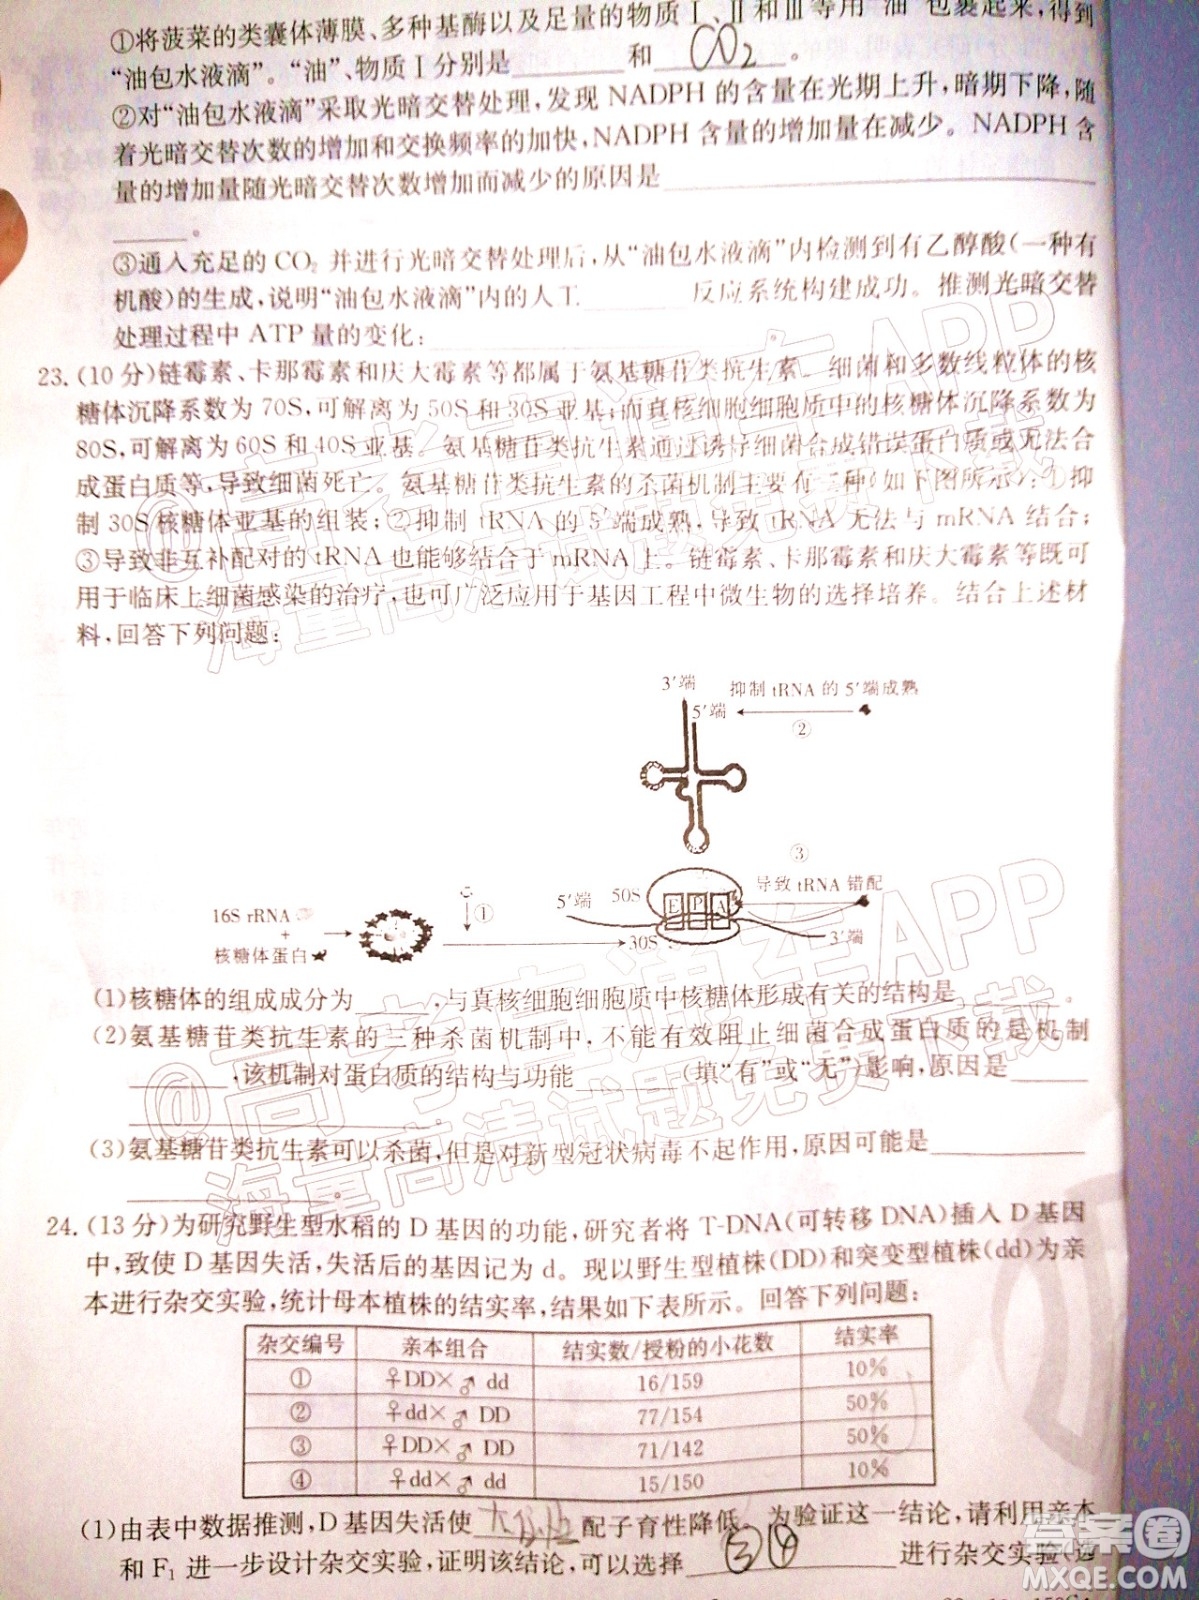 ①将菠菜的类囊体薄膜、多种基酶以及足量的物质Ⅰ、Ⅱ和Ⅲ等用“油”包裹起来,得到
“油包水液滴”。“油”、物质Ⅰ分别是________和 CO2 。
②对“油包水液滴”采取光暗交替处理,发现 NADPH 的含量在光期上升,暗期下降,随
着光暗交替次数的增加和交换频率的加快,NADPH 含量的增加量在减少。NADPH 含
量的增加量随光暗交替次数增加而减少的原因是________
________。
③通入充足的 CO₂ 并进行光暗交替处理后,从“油包水液滴”内检测到有乙醇酸(一种有
机酸)的生成,说明“油包水液滴”内的人工________反应系统构建成功。推测光暗交替
处理过程中 ATP 量的变化:________
23. (10 分)链霉素、卡那霉素和庆大霉素等都属于氨基糖苷类抗生素。细菌和多数线粒体的核
糖体沉降系数为 70S,可解离为 50S 和 30S 亚基;而真核细胞细胞质中的核糖体沉降系数为
80S,可解离为 60S 和 40S 亚基。氨基糖苷类抗生素通过诱导细菌合成错误蛋白质或无法合
成蛋白质等,导致细菌死亡。氨基糖苷类抗生素的杀菌机制主要有三种(如下图所示):①抑
制 30S 核糖体亚基的组装;②抑制 tRNA 的 5′端成熟,导致 tRNA 无法与 mRNA 结合;
③导致非互补配对的 tRNA 也能够结合于 mRNA 上。链霉素、卡那霉素和庆大霉素等既可
用于临床上细菌感染的治疗,也可广泛应用于基因工程中微生物的选择培养。结合上述材
料,回答下列问题:
3′端
5′端
抑制 tRNA 的 5′端成熟
②
③
导致 tRNA 错配
5′端
50S
E P A
30S
3′端
①
16S rRNA
+
核糖体蛋白
(1)核糖体的组成成分为________,与真核细胞细胞质中核糖体形成有关的结构是________。
(2)氨基糖苷类抗生素的三种杀菌机制中,不能有效阻止细菌合成蛋白质的是机制
________,该机制对蛋白质的结构与功能________(填“有”或“无”)影响,原因是________
________。
(3)氨基糖苷类抗生素可以杀菌,但是对新型冠状病毒不起作用,原因可能是________
________。
24. (13 分)为研究野生型水稻的 D 基因的功能,研究者将 T-DNA(可转移 DNA)插入 D 基因
中,致使 D 基因失活,失活后的基因记为 d。现以野生型植株(DD)和突变型植株(dd)为亲
本进行杂交实验,统计母本植株的结实率,结果如下表所示。回答下列问题:
杂交编号 亲本组合 结实数/授粉的小花数 结实率
① ♀DD×♂dd 16/159 10%
② ♀dd×♂DD 77/154 50%
③ ♀DD×♂DD 71/142 50%
④ ♀dd×♂dd 15/150 10%
(1)由表中数据推测,D 基因失活使________配子育性降低。为验证这一结论,请利用亲本
和 F₁ 进一步设计杂交实验,证明该结论,可以选择 ③④ 进行杂交实验(选
@高考直通车APP
海量高清试题免费下载
@高考直通车APP
海量高清试题免费下载
答案圈
MXQE.COM